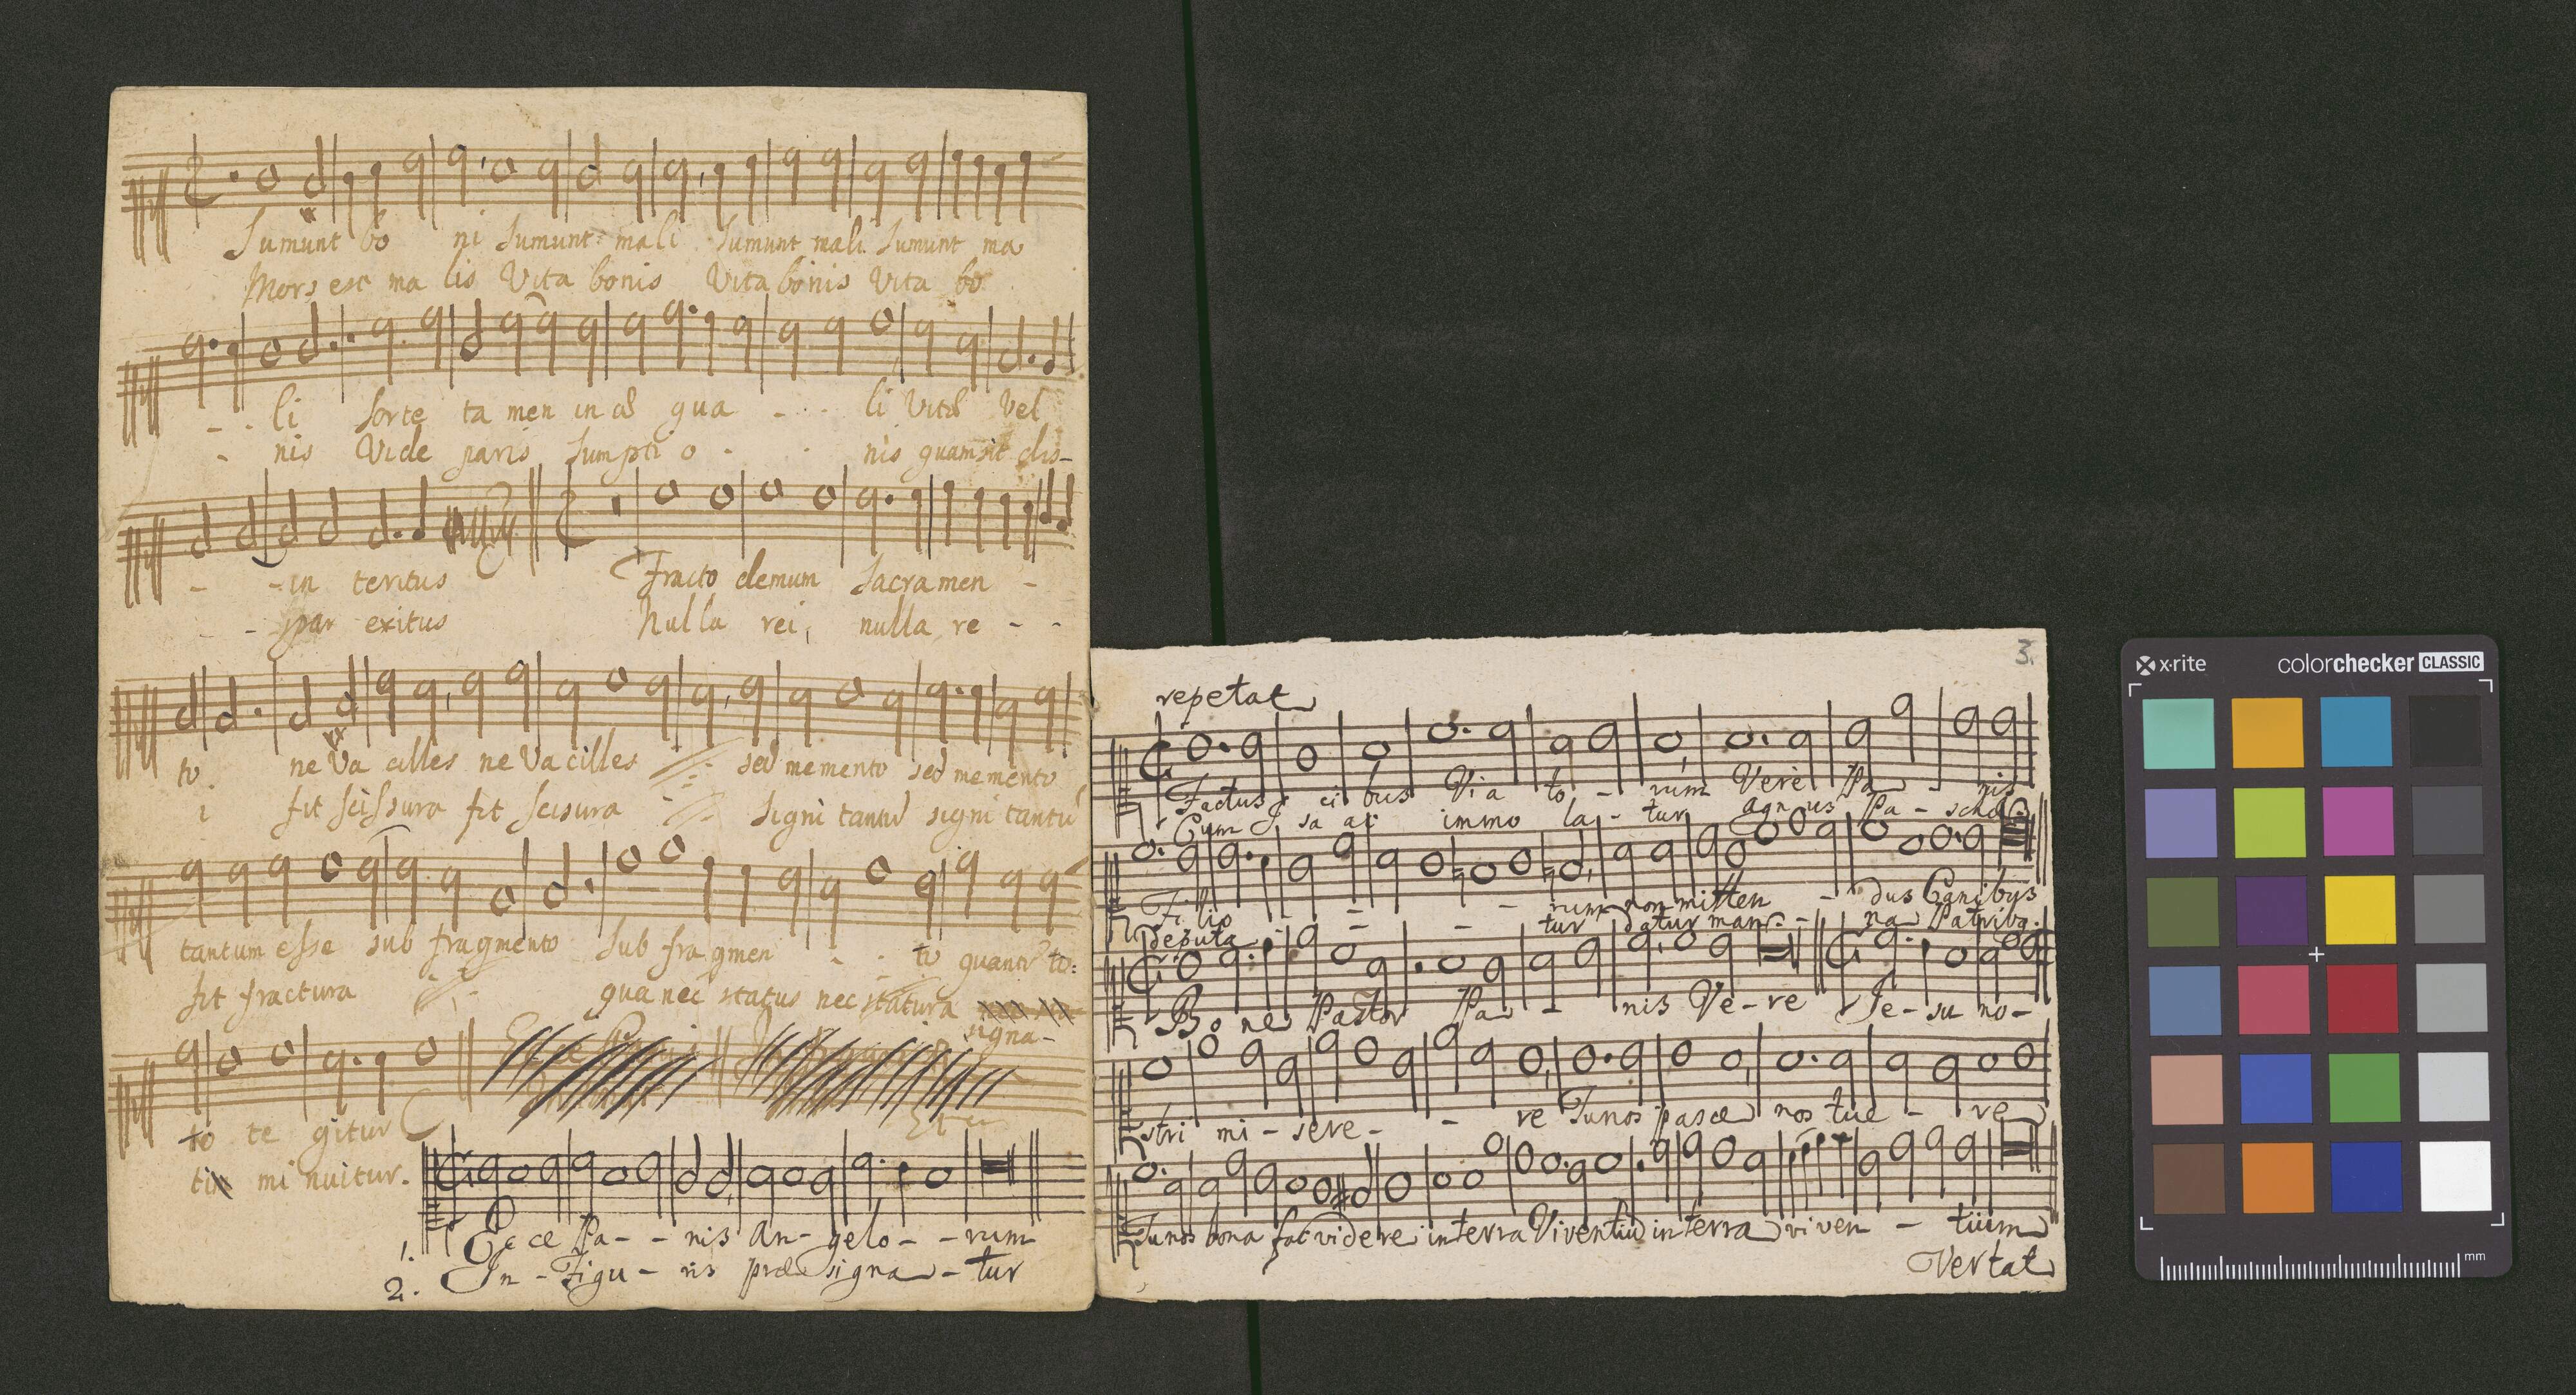 Sumunt bo ni Sumunt mali Sumunt mali Sumunt ma
Mors est ma lis Vita bonis Vita bonis Vita bo
- - li Sorte ta men in æ qua - - - li Vitæ Vel
- nis Vide paris Sumpti o - - nis quam sit dis-
- - in teritus Fracto demum Sacra men -
- par exitus Nulla rei, nulla re - -
to. ne Va cilles ne Vacilles sed memento sed memento
i fit scissura fit scisura signi tantu signi tantu
tantum esse sub fragmento Sub fragmen - - to quantu to:
fit fractura qua nec status nec statura
signa-
to te gitur
ti mi nuitur.
1. Ecce Pa - - nis An - gelo - - rum
2. In - Figu - ris præ signa - tur
3.
repetat
Factus ci bus Via to - rum Verè Pa - nis
Cum I sa ac immo la - tur agnus Pa - schæ
Filio - - - rum non mitten - dus Canibus
deputa - - - tur datur man - na Patribq.
Bone Pastor Pa - nis Ve - re Je - su no -
stri mi - sere - - re Tu nos pasce nos tue - re
Tu nos bona fac videre in terra Viventiu in terra viven - tium
Vertat
x-rite colorchecker CLASSIC
mm